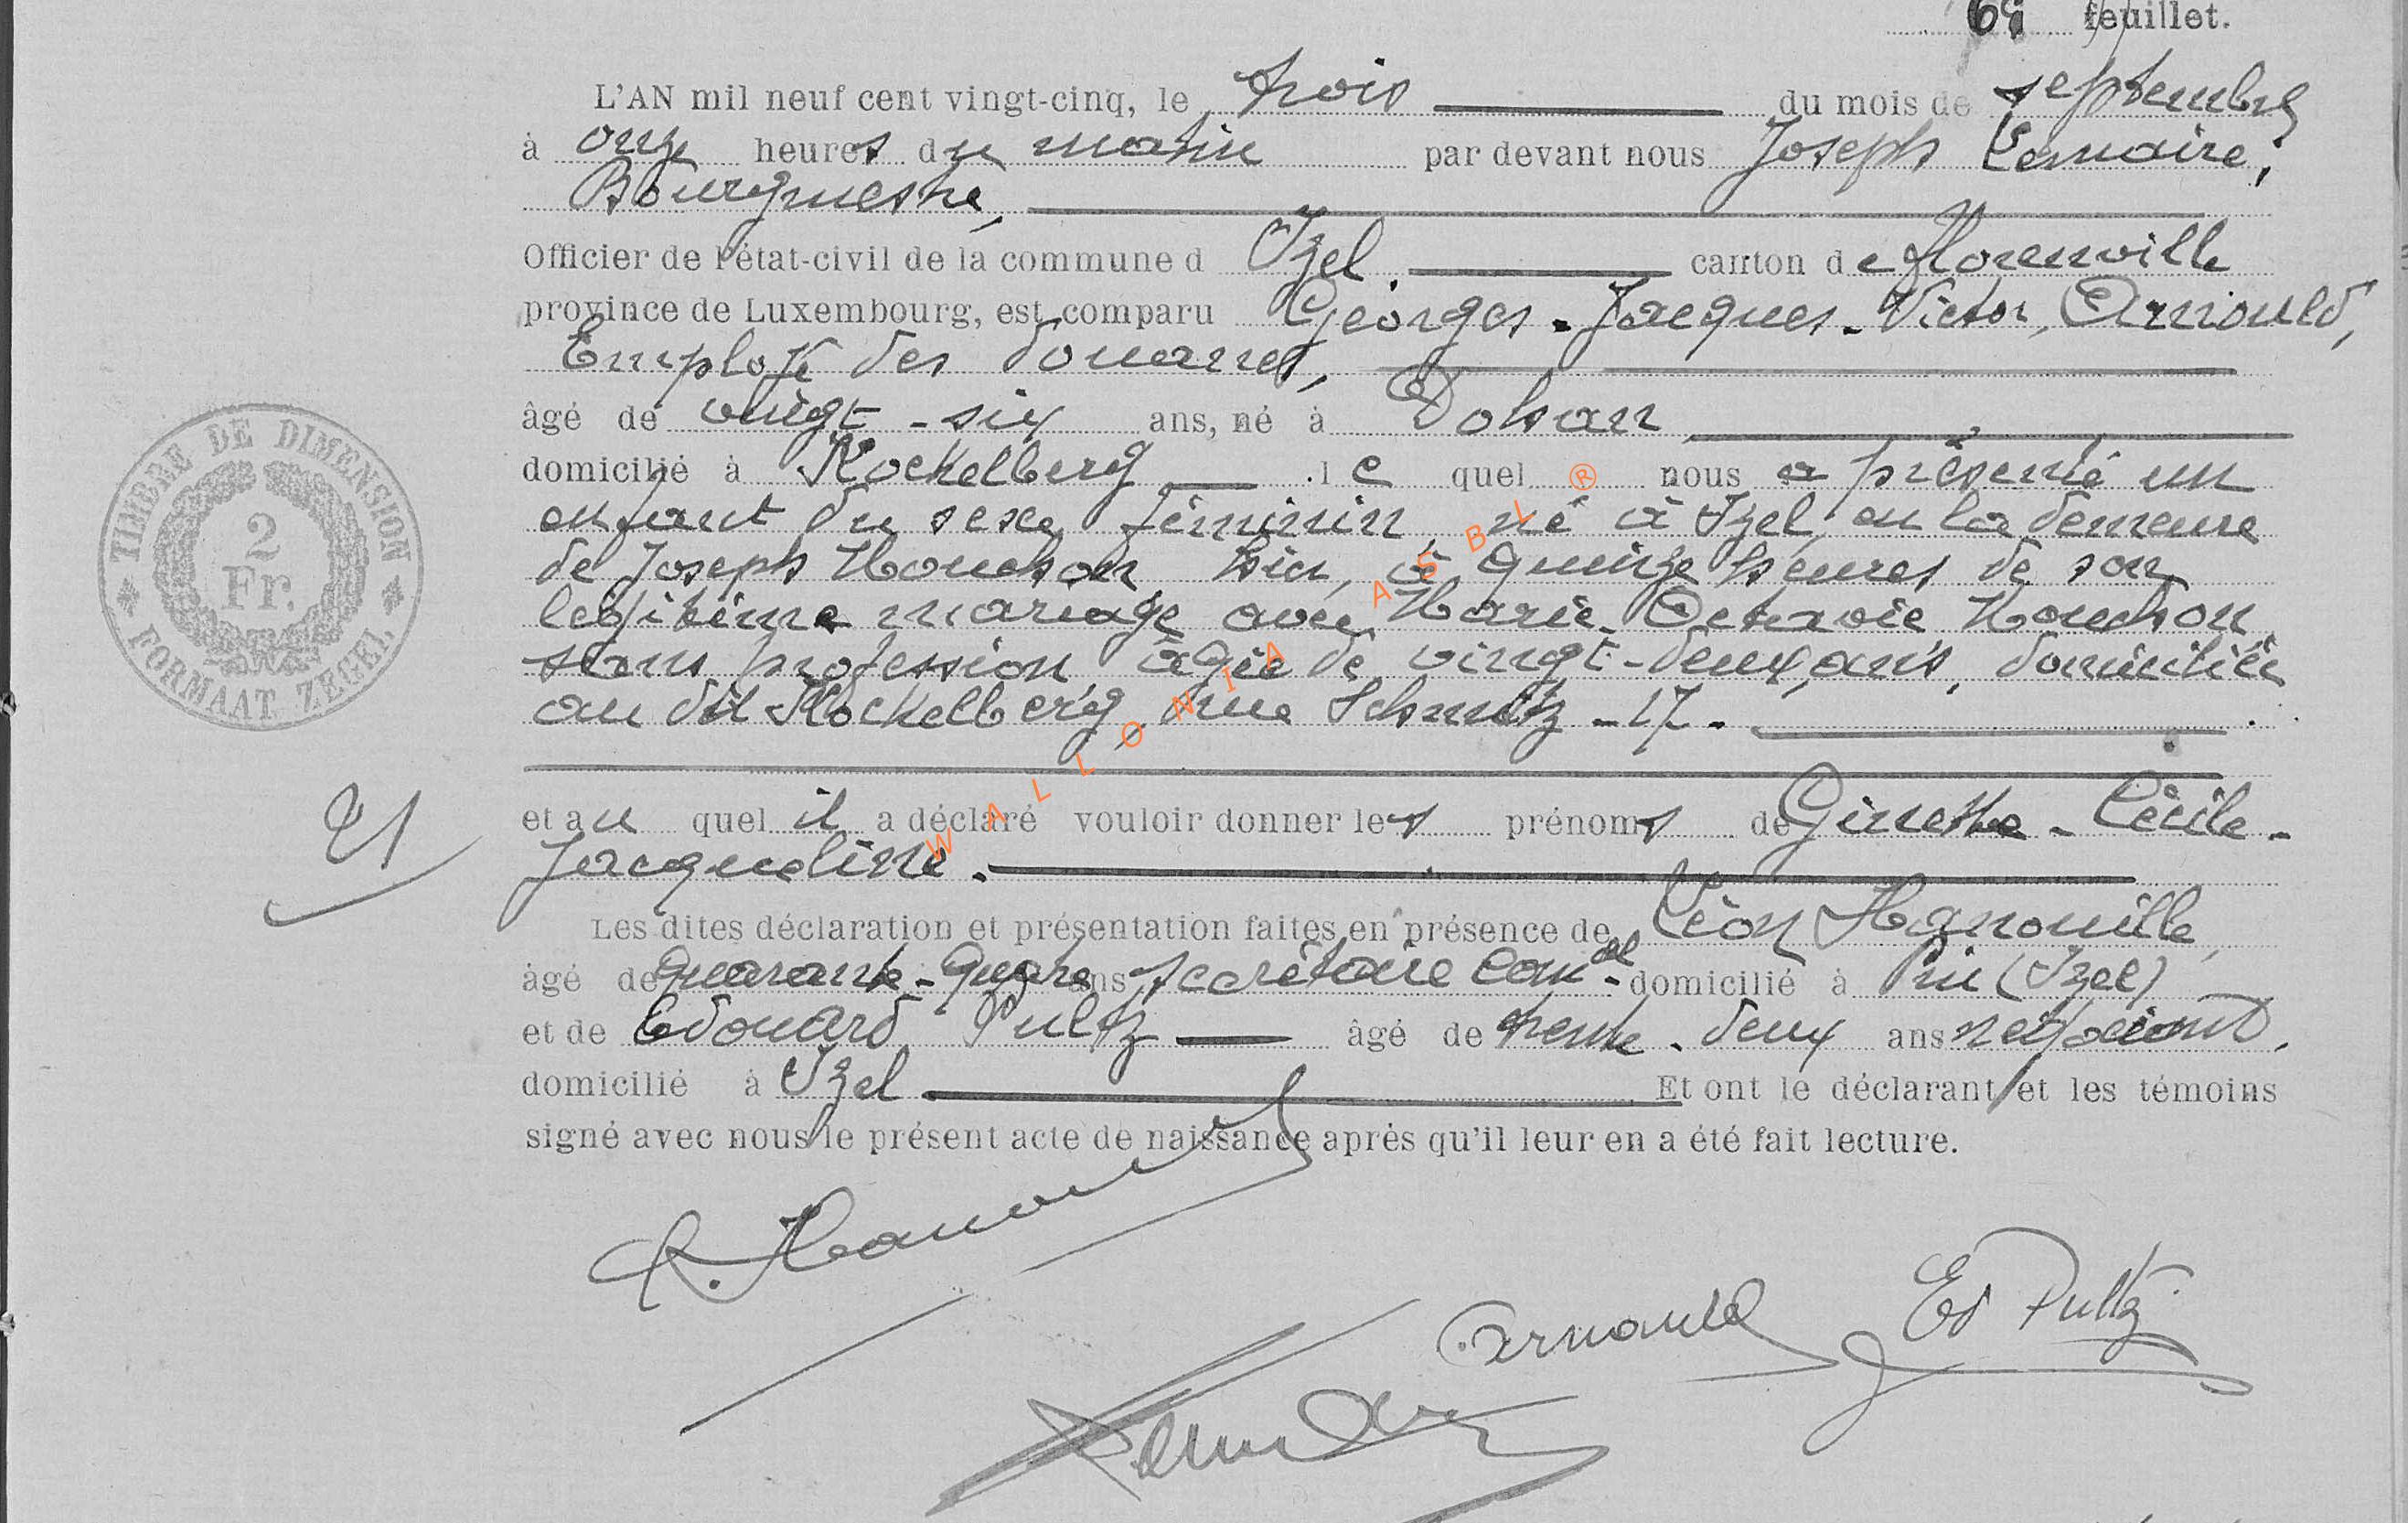 6e feuillet.
L'AN mil neuf cent vingt-cinq, le trois du mois de septembre
à onze heures du matin par devant nous Joseph Lemaire,
Bourgmestre,
Officier de l'état-civil de la commune d Izel canton de Florenville
province de Luxembourg, est comparu Georges-Jacques-Victor, Arnould,
Employé des douanes,
âgé de vingt-six ans, né à Dohan
domicilié à Kockelberg le quel nous a présenté un
enfant du sexe féminin, né à Izel, en la demeure
de Joseph Houchon hier, à quinze heures de son
légitime mariage avec Marie-Octavie Houchon,
sans profession, âgée de vingt-deux ans, domiciliée
au dit Kockelberg, rue Schmitz-17.
et au quel il a déclaré vouloir donner les prénoms de Ginette-Cécile-
Jacqueline.
21
Les dites déclaration et présentation faites en présence de Léon Hanouille,
âgé de quarante-quatre ans secrétaire com-al domicilié à Pin (Izel)
et de Edouard Pultz âgé de trente-deux ans négociant,
domicilié à Izel Et ont le déclarant et les témoins
signé avec nous le présent acte de naissance après qu'il leur en a été fait lecture.
Arnould Ed Pultz
TIMBRE DE DIMENSION
2
Fr.
FORMAAT ZEGEL
WALLONIA ASBL ®